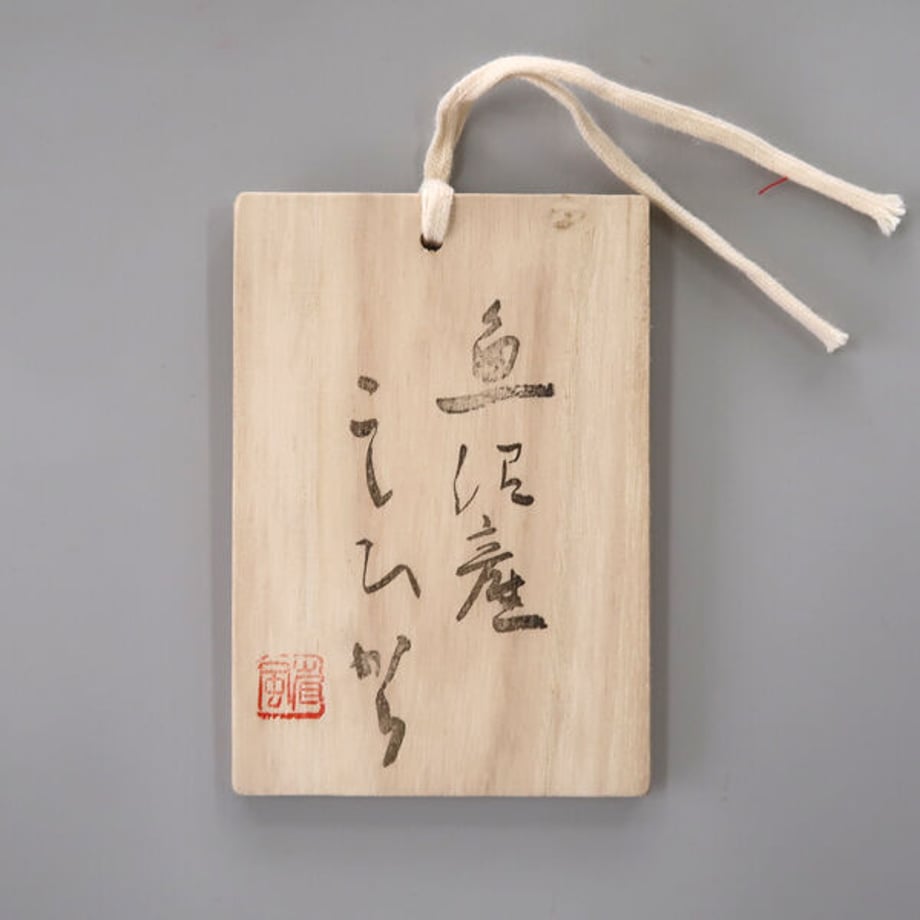 魚沼産
こしひかり